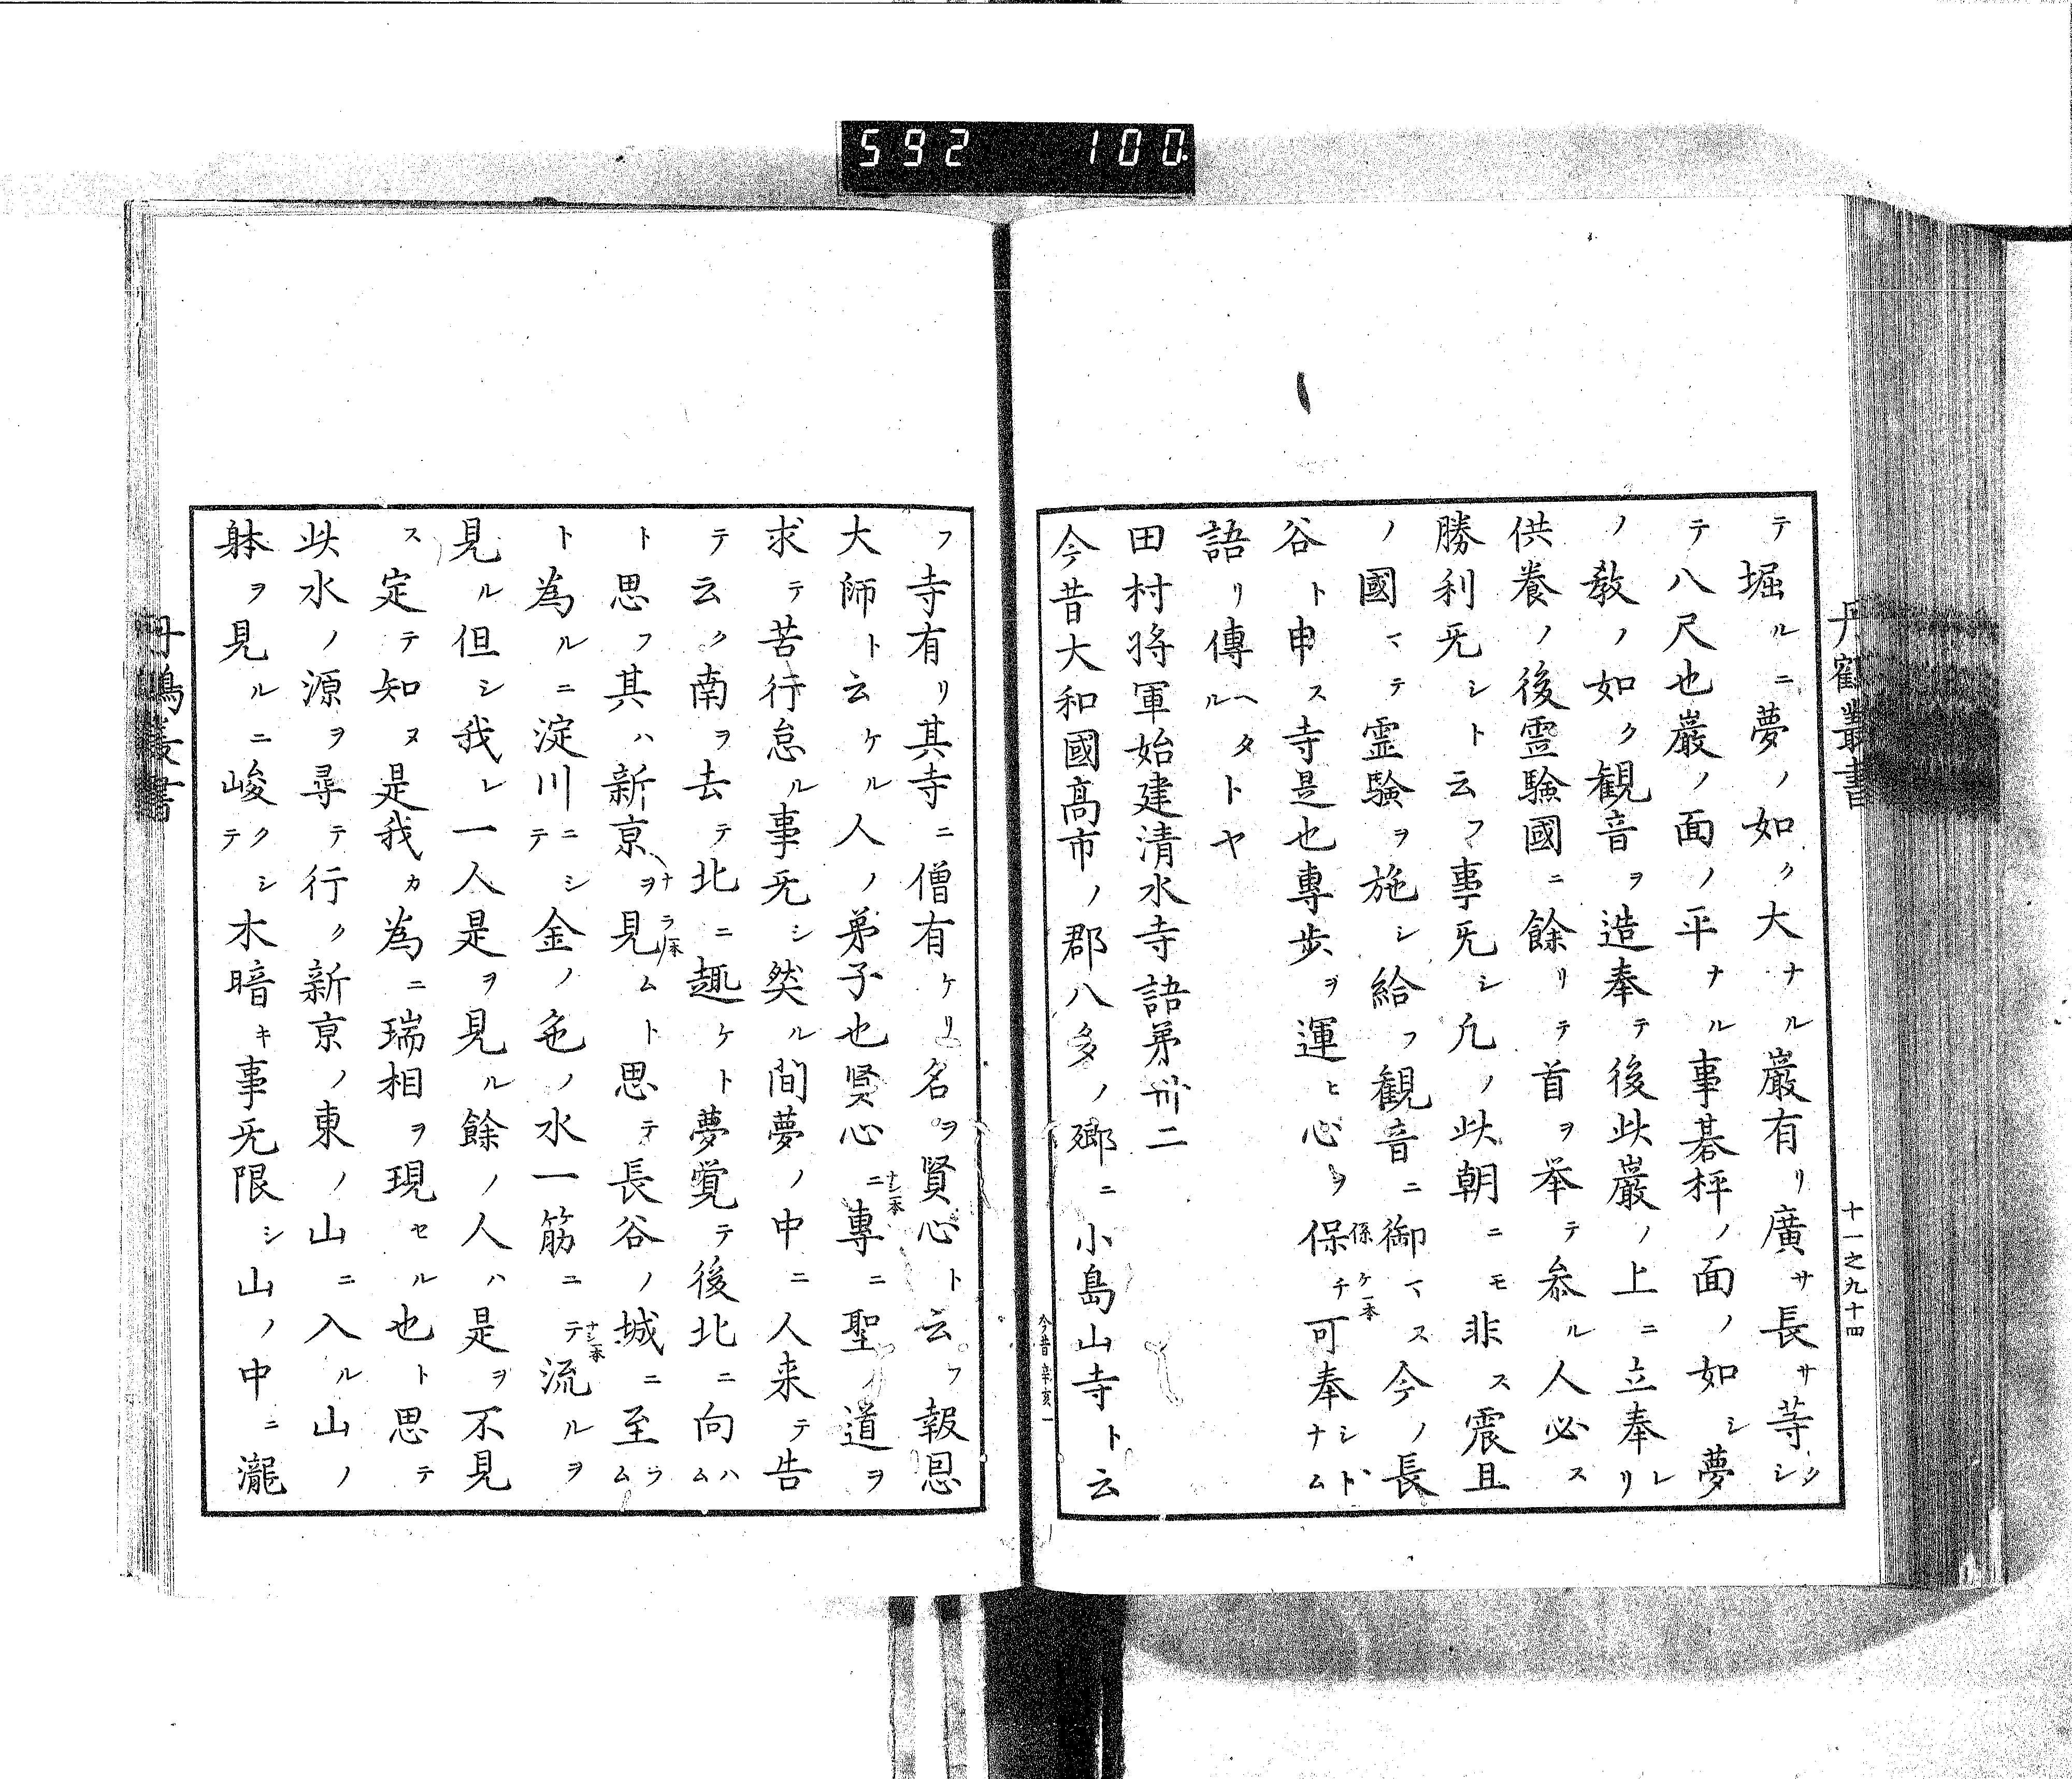 592 100
丹鶴叢書
十一之九十四
テ堀ルニ夢ノ如ク大ナル巖有リ廣サ長サ等クシ
テ八尺也巖ノ面ノ平ナル事碁枰ノ面ノ如シ夢
ノ敎ノ如ク観音ヲ造奉テ後此巖ノ上ニ立奉レリ
供養ノ後霊驗國ニ餘リテ首ヲ举テ叅ル人必ス
勝利旡シト云フ事旡シ凢ノ此朝ニモ非ス震且
ノ國マテ霊驗ヲ施シ給フ観音ニ御マス今ノ長
谷ト申ス寺是也專歩ヲ運ヒ心ヲ保チ可奉シナムトド
係ケ一本
語リ傳ヘルタトヤ
田村将軍始建清水寺語苐卅二
今昔大和國髙市ノ郡八多ノ郷ニ小島山寺ト云
今昔 辛亥一
フ寺有リ其寺ニ僧有ケリ名ヲ賢心ト云フ報恩
大師ト云ケル人ノ弟子也贒心ニ專ニ聖ノ道ヲ
ナシ一本
求テ苦行怠ル事旡シ然ル間夢ノ中ニ人来テ告
テ云ク南ヲ去テ北ニ趣ケト夢覚テ後北ニ向ハム
ト思フ其ハ新京ヲ見ムト思テ長谷ノ城ニ至ラム
ナラ一本
ト為ルニ淀川ニシテ金ノ色ノ水一筋ニテ流ルヲ
ナシ一本
見ル但シ我レ一人是ヲ見ル餘ノ人ハ是ヲ不見
ス定テ知ヌ是我カ為ニ瑞相ヲ現セル也ト思テ
此水ノ源ヲ尋テ行ク新京ノ東ノ山ニ入ル山ノ
躰ヲ見ルニ峻クシテ木暗キ事旡限シ山ノ中ニ瀧
丹鶴叢書